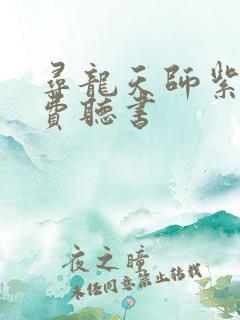 尋龍天師紫
費聽書
夜之瞳
未经同意禁止转载